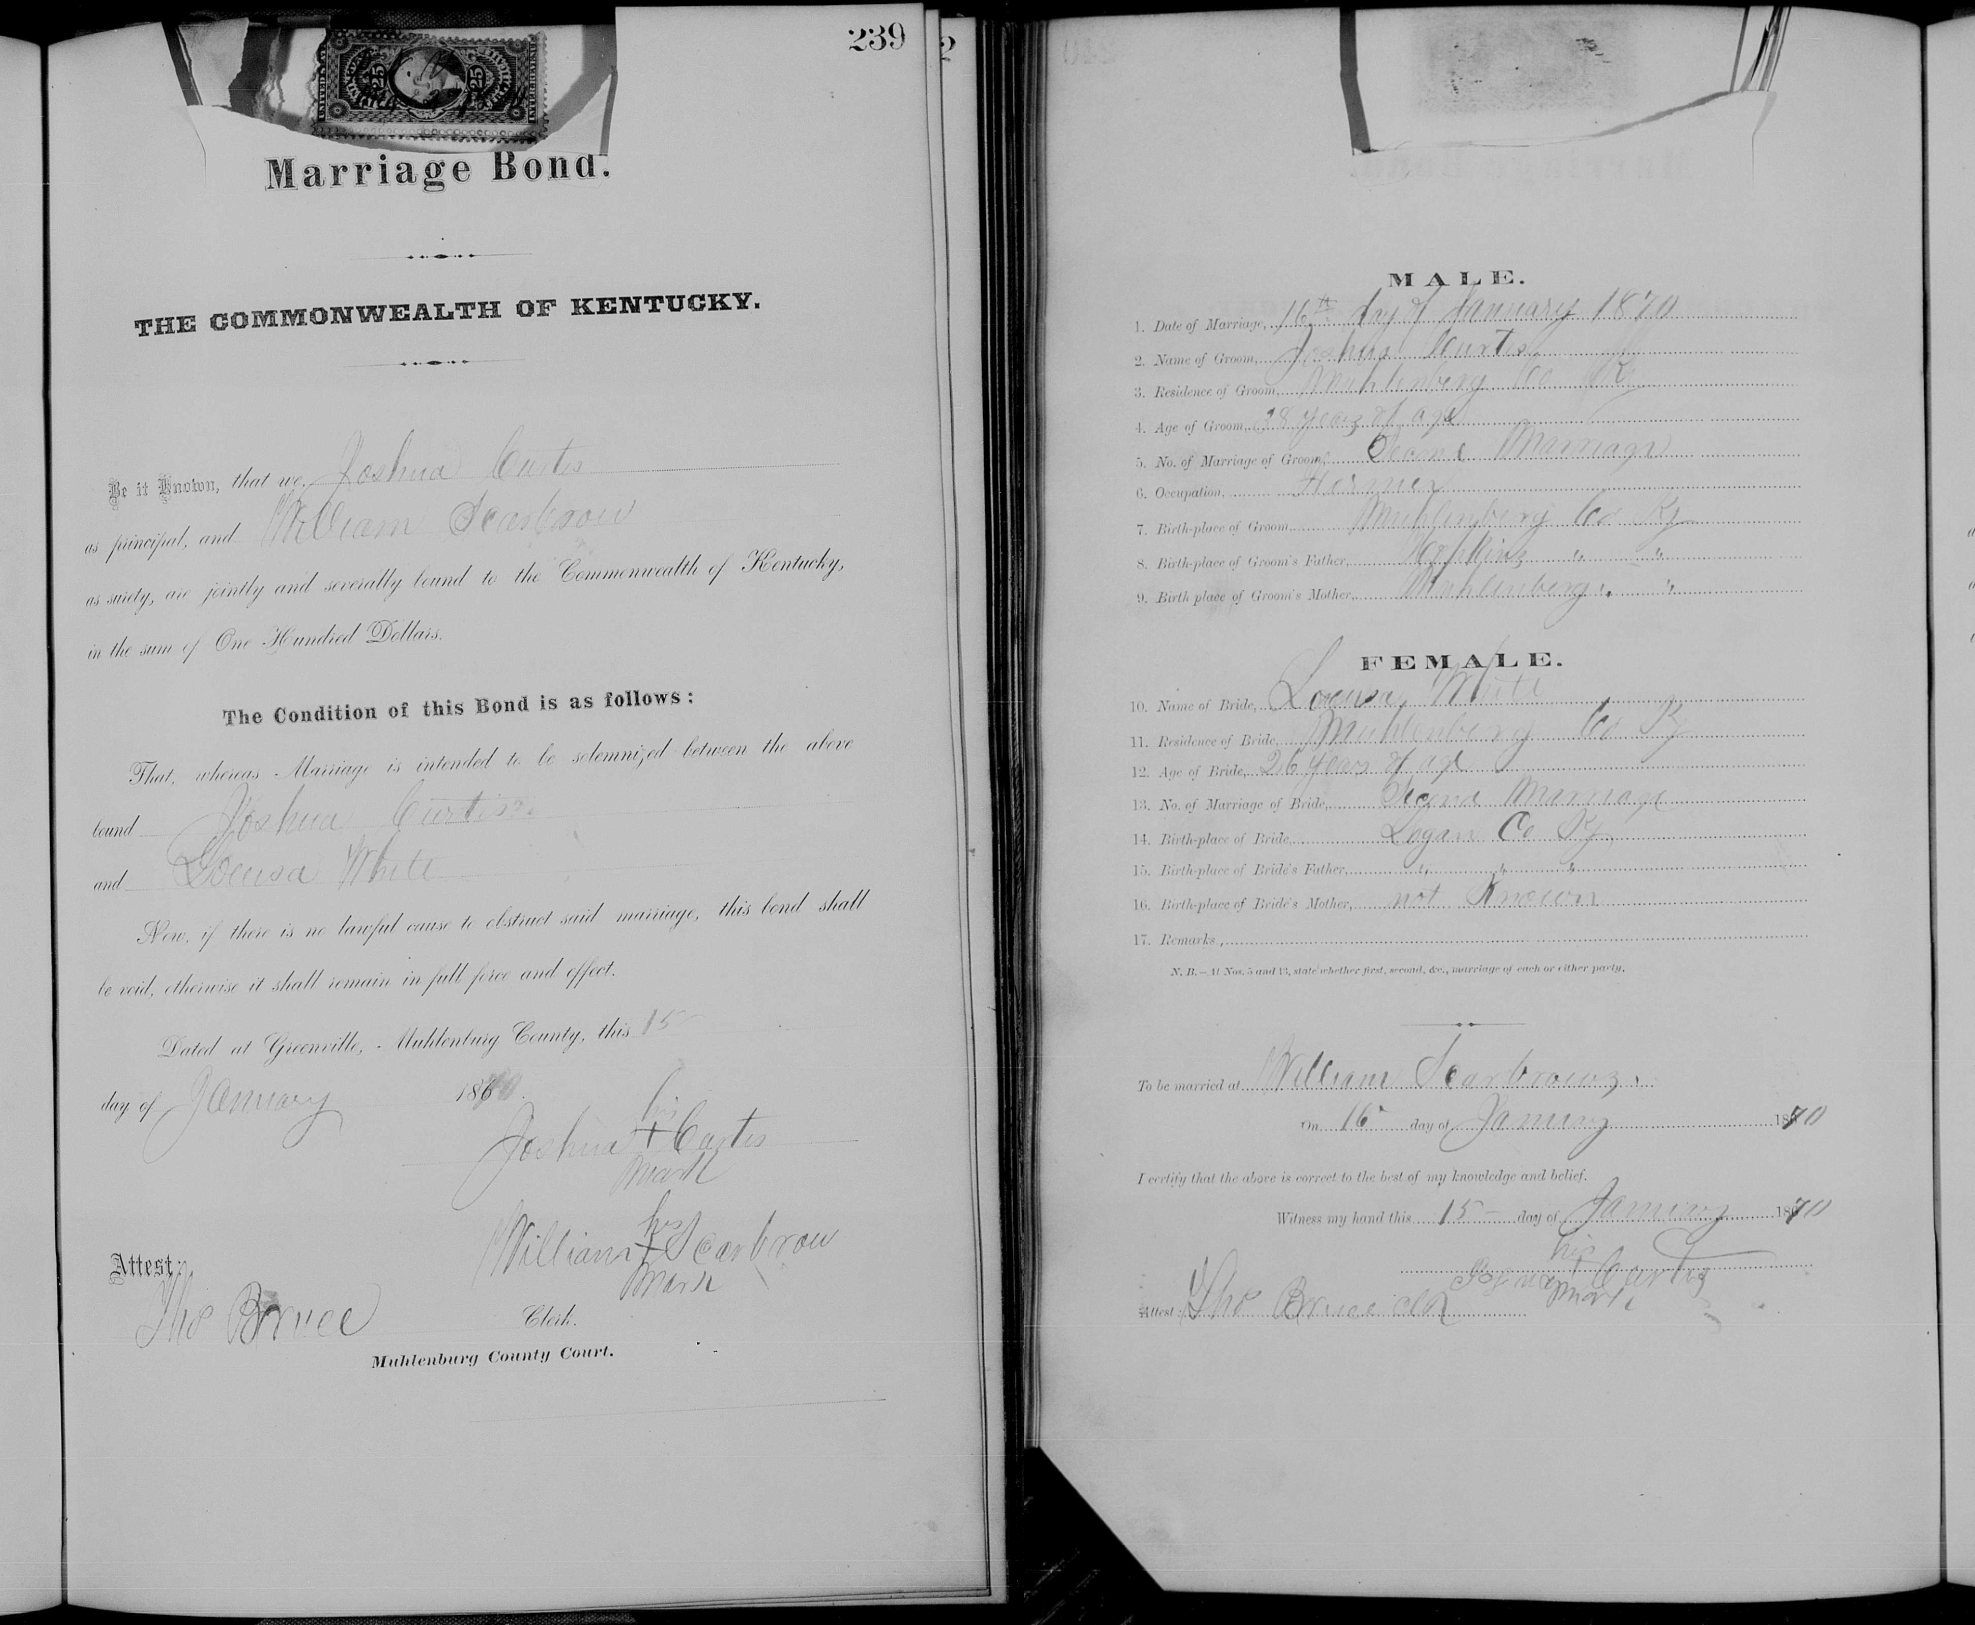 239
2
25 25
Marriage Bond.
THE COMMONWEALTH OF KENTUCKY.
Be it Known, that we, Joshua Curtis
as principal, and William Scarbrow
as surety, are jointly and severally bound to the Commonwealth of Kentucky,
in the sum of One Hundred Dollars.
The Condition of this Bond is as follows:
That, whereas Marriage is intended to be solemnized between the above
bound Joshua Curtis
and Louisa White
Now, if there is no lawful cause to obstruct said marriage, this bond shall
be void, otherwise it shall remain in full force and effect.
Dated at Greenville, Muhlenburg County, this 15
day of January 1870.
his
Joshua + Curtis
mark
his
William + Scarbrow
mark
Attest:
Tho Bruce Clerk.
Muhlenburg County Court.
MALE.
1. Date of Marriage, 16th day of January 1870
2. Name of Groom, Joshua Curtis
3. Residence of Groom, Muhlenberg Co Ky
4. Age of Groom, 28 years of age
5. No. of Marriage of Groom, Second Marriage
6. Occupation, Farmer
7. Birth-place of Groom Muhlenberg Co Ky
8. Birth-place of Groom's Father, Hopkins " "
9. Birth place of Groom's Mother, Muhlenberg " "
FEMALE.
10. Name of Bride, Louisa White
11. Residence of Bride, Muhlenberg Co Ky
12. Age of Bride, 26 years of age
13. No. of Marriage of Bride, Second Marriage
14. Birth-place of Bride, Logan Co Ky
15. Birth-place of Bride's Father, " " "
16. Birth-place of Bride's Mother, not Known
17. Remarks,
N. B.—At Nos. 5 and 13, state whether first, second, &c., marriage of each or either party.
To be married at William Scarbrows.
On 16 day of January 1870
I certify that the above is correct to the best of my knowledge and belief.
Witness my hand this 15 day of January 1870
his
Joshua + Curtis
mark
Attest: Tho Bruce clk